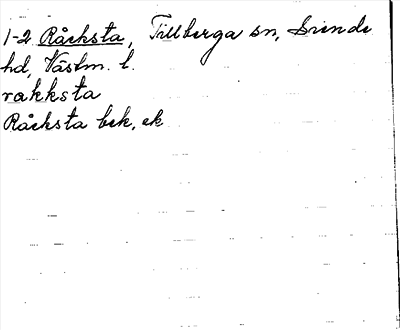 1-2 Råcksta, Tillberga sn, Siende
hd, Västm. l.
rakksta
Råcksta bek, ek